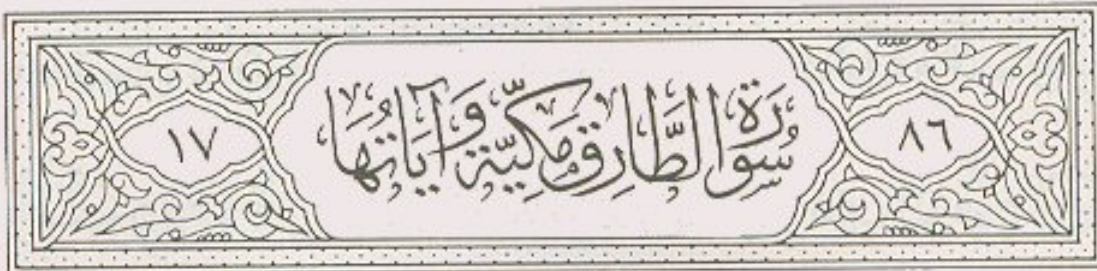 ٨٦
سُورَةُ الطَّارِقِ مَكِّيَّة وَآيَاتُهَا
١٧